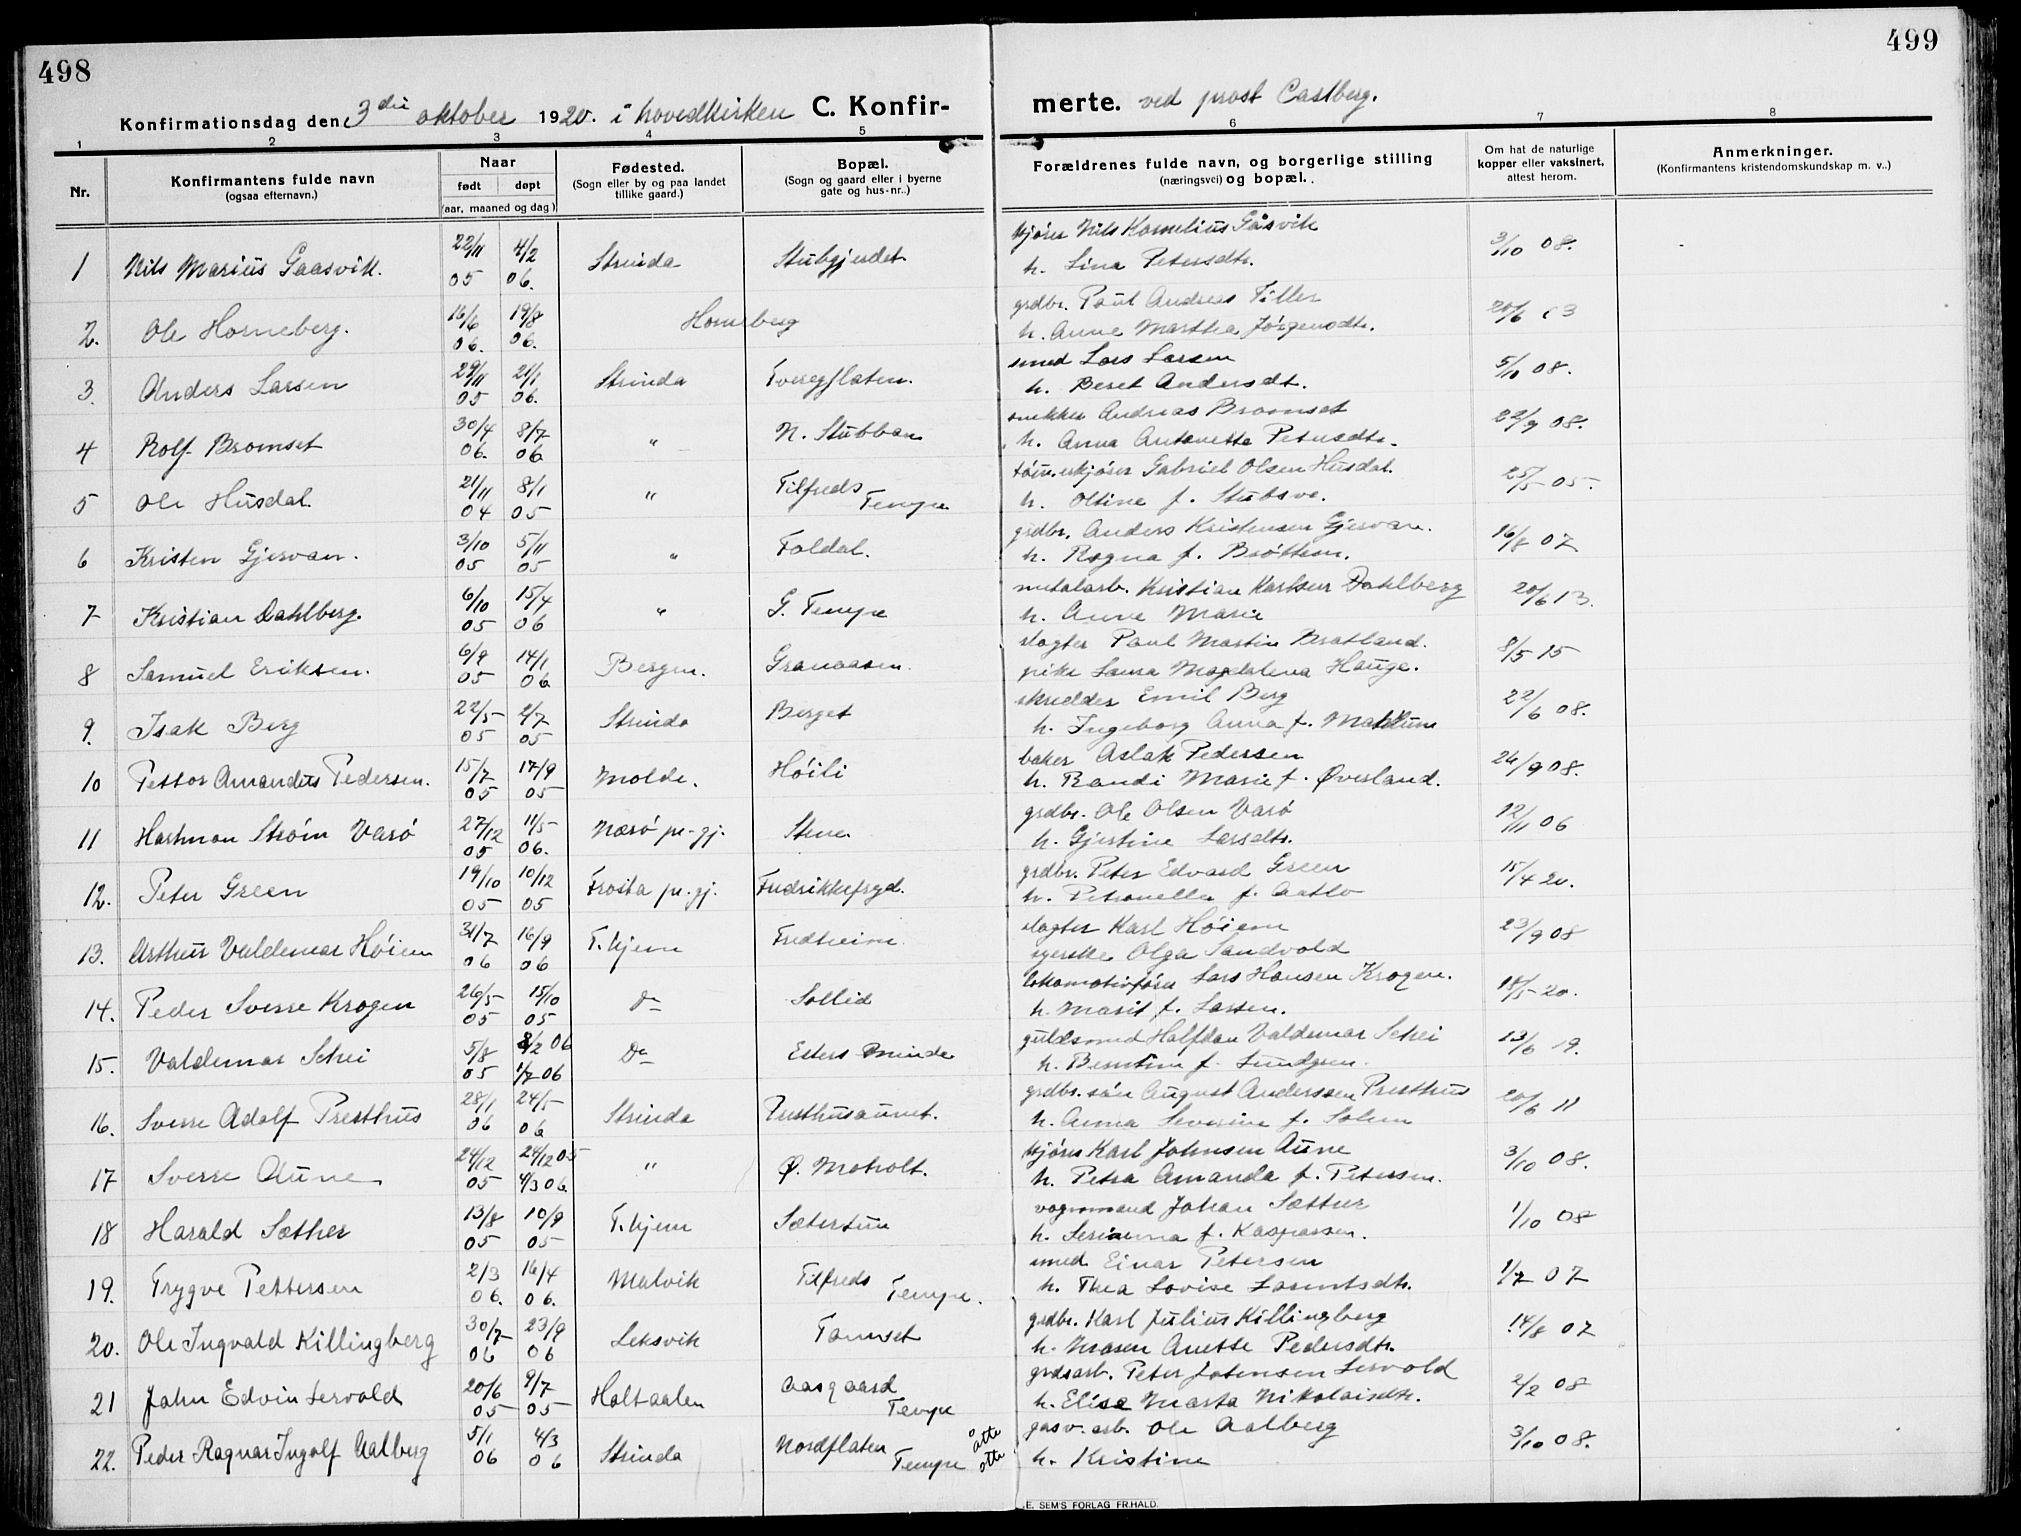 498
499
Konfirmationsdag den 3die oktober 1920. i hovedkirken C. Konfir-
merte. ved prost Castberg.
1 2 3 4 5 6 7 8
Nr.
Konfirmantens fulde navn
(ogsaa efternavn.)
Naar
født døpt
(aar, maaned og dag)
Fødested.
(Sogn eller by og paa landet
tillike gaard.)
Bopæl.
(Sogn og gaard eller i byerne
gate og hus-nr..)
Forældrenes fulde navn, og borgerlige stilling
(næringsvei) og bopæl..
Om hat de naturlige
kopper eller vaksinert,
attest herom.
Anmerkninger.
(Konfirmantens kristendomskundskap m. v..)
1 Nils Marius Gaasvik. 22/11 05 4/2 06. Strinda Stubgjerdet
kjører Nils Kornelius Gåsvik
h. Lina Petersdtr. 3/10 08.
2. Ole Horneberg. 16/6 06. 19/8 06. Horneberg
grdbr. Paul Andreas Tiller
h. Anne Martha Jørgensdtr. 20/6 03
3. Anders Larsen 29/11 05 21/1 06. Strinda Tveregflaten.
smed Lars Larsen
h. Beret Andersdt. 5/10 08.
4 Rolf Bromset 30/4 06. 8/7 06 " N. Stubban
snekker Andreas Bromset
h. Anna Antonette Petersdtr. 22/9 08.
5 Ole Husdal 21/11 04 8/1 05 " Tilfreds Tempe
tøm.erkjører Gabriel Olsen Husdal.
h. Oline f. Stubsve. 25/5 05.
6 Kristen Gjervan. 3/10 05 5/11 05 " Foldal.
grdbr. Anders Kristensen Gjervan.
h. Ragna f. Brøttem. 16/8 07
7 Kristian Dahlberg. 6/10 05 15/4 06 " G. Tempe
metalarb. Kristian Karlsen Dahlberg
h. Anne Marie 20/6 13.
8 Samuel Eriksen. 6/9 05 14/1 06 Bergen. Granaasen.
slagter Paul Martin Bratland.
pike Laura Magdalena Hauge. 8/5 15
9. Isak Berg 22/5 05 2/7 05 Strinda Berget
skredder Emil Berg
h. Ingeborg Anna f. 22/6 08.
10 Pettor Amandus Pedersen. 15/7 05 17/9 05 Molde. Høili
baker Aslak Pedersen
h. Randi Marie f. Øverland. 26/9 08.
11 Hartman Strøm Varø 27/12 05 11/5 06. Nærø pr.gj. Stene
grdbr. Ole Olsen Varø
h. Gjertine Larsdtr. 12/11 06
12. Peter Green 19/10 05 10/12 05 Frosta pr.gj. Fredrikkefryd.
grdbr. Peter Edvard Green
h. Petronelle f. Aatlo 15/4 20.
13. Arthur Valdemar Høiem 31/7 06 16/9 06 T.hjem Fredheim
slagter Karl Høiem
syerske Olga Sandvold 23/9 08
14. Peder Sverre Krogen 26/5 05 15/10 05 Do Sollid
lokomotivfører Lars Hansen Krogen.
h. Marit f. Larsen. 18/5 20.
15. Valdemar Schei 5/8 05 8/2 06 1/7 06 Do Esters minde
guldsmed Halfdan Valdemar Schei
h. Berntine f. Lundgren. 13/6 19.
16. Sverre Adolf Presthus 28/1 06 24/5 06 Strinda Presthusaunet.
grdbr.søn August Anderssen Presthus
h. Anna Severine f. Solem 20/6 11
17 Sverre Aune 24/12 05 24/12 05 4/3 06. " Ø. Moholt.
kjører Karl Johnsen Aune
h. Petra Amanda f. Petersen. 3/10 08.
18 Harald Sæther 13/8 05 10/9 05 T.hjem Sætertun
vognmand Johan Sæther
h. Serianna f. Kasparsen. 1/10 08
19. Trygve Pettersen 2/3 06. 16/4 06. Malvik Tilfreds Tempe.
smed Einar Petersen
h. Thea Lovise Larentsdtr. 1/7 07
20. Ole Ingvald Killingberg 30/7 06 23/9 06 Leksvik Tomset
grdbr. Karl Julius Killingberg
h. Maren Anette Pedersdtr. 14/8 07
21 John Edvin Lervold 20/6 05 9/7 05 Holtaalen Aasgaard Tempe
grdsarb. Peter Johnsen Lervold
h. Elise Marta Nikolaisdtr. 2/2 08
22. Peder Ragnar Ingolf Aalberg 5/1 06 4/3 06 Strinda Nordflaten Tempe åtte otte
gasv.arb. Ole Aalberg
h. Kristine 3/10 08.
E. SEM'S FORLAG FR.HALD.